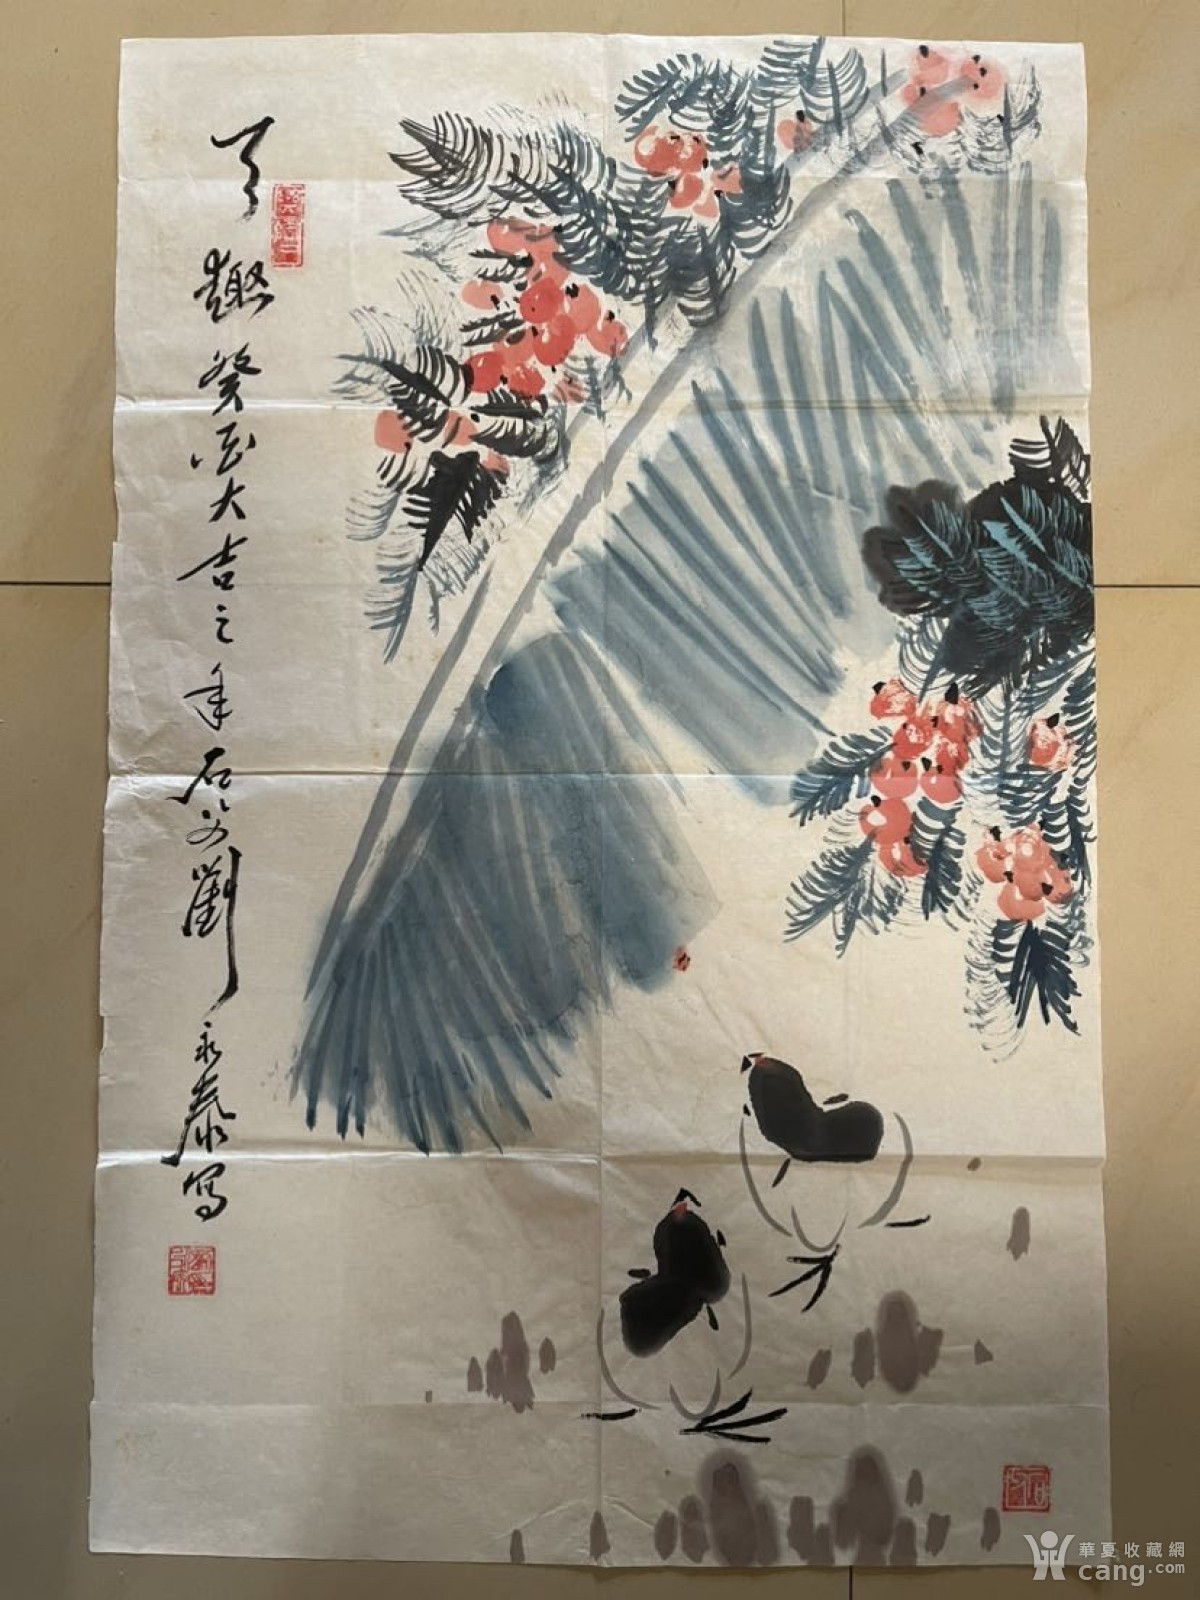 天趣癸酉大吉之年石父劉永泰寫
華夏收藏網
cang.com